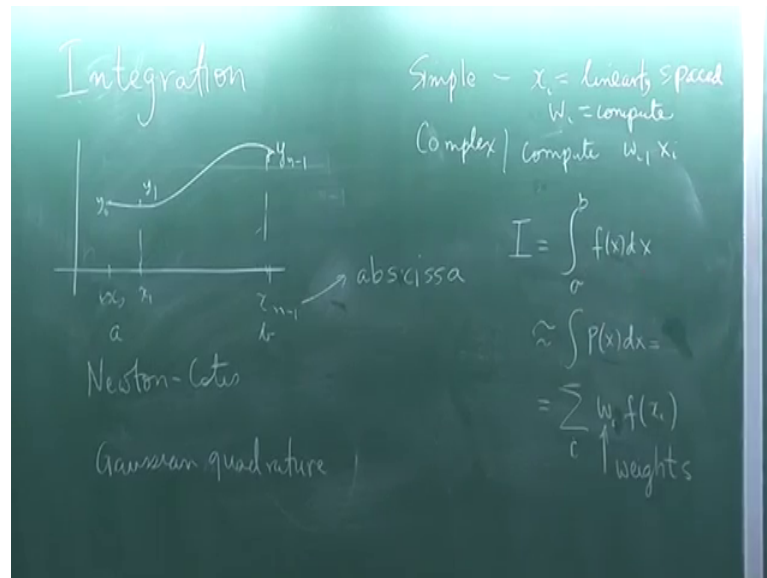 Integration
y₀ y₁ yₙ₋₁
x₀ x₁ xₙ₋₁ → abscissa
a b
Newton-Cotes
Gaussian quadrature
Simple - xᵢ = linearly spaced
wᵢ = compute
Complex | compute wᵢ, xᵢ
I = ∫ₐᵇ f(x)dx
≈ ∫ P(x)dx =
= Σᵢ wᵢ f(xᵢ)
↑ weights